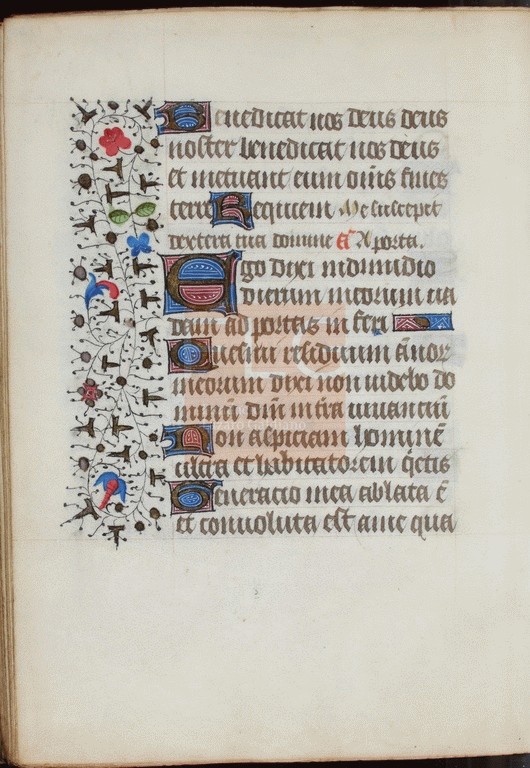 Benedicat nos deus deus
noster benedicat nos deus
et metuant eum om̄s fines
terre Requiem Me suscepit
dextera tua domine a᷒ A porta.
Ego dixi in dimidio
dierum meorum va
dam ad portas inferi
Quesiui residuum ānor
meorum dixi non uidebo do
minū dm̄ in t̄ra uiuentiū
Non aspiciam hominē
ultra et habitatorem q̄etis
Generacio mea ablata ē
et conuoluta est a me qua